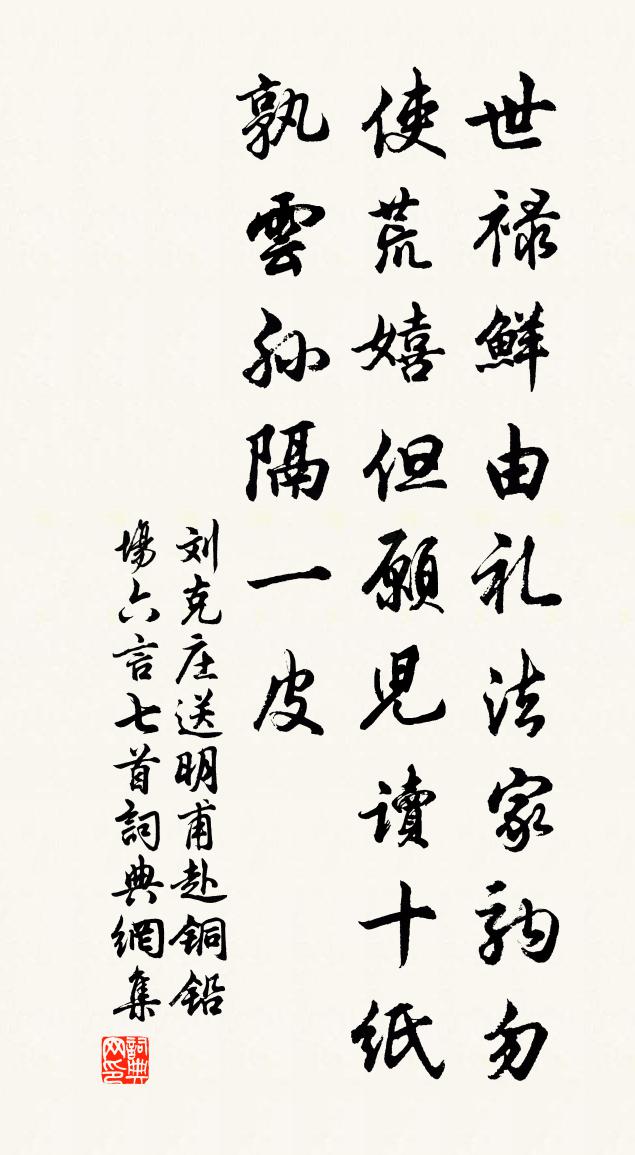 世禄鮮由礼法家駒勿
使荒嬉但願児讀十紙
孰雲孙隔一皮
刘克庄送明甫赴銅鉛
場六言七首詞典網集
詞典网印